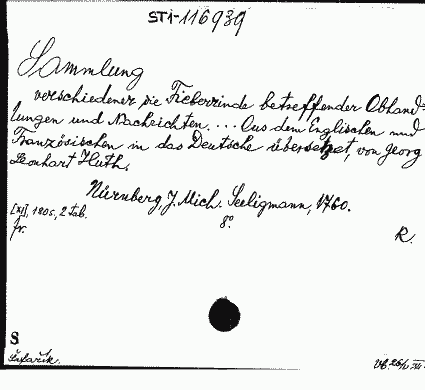 ST1-116939
Sammlung
verschiedener die Fieberrinde betreffender Abhand=
lungen und Nachrichten. ... Aus dem Englischen und
Französischen in das Deutsche übersetzet, von Georg
Leonhart Huth.
Nürnberg, J. Mich. Seeligmann, 1760.
[XI], 190 s, 2 Tab. 8°
fr. R.
S
Šafařík.